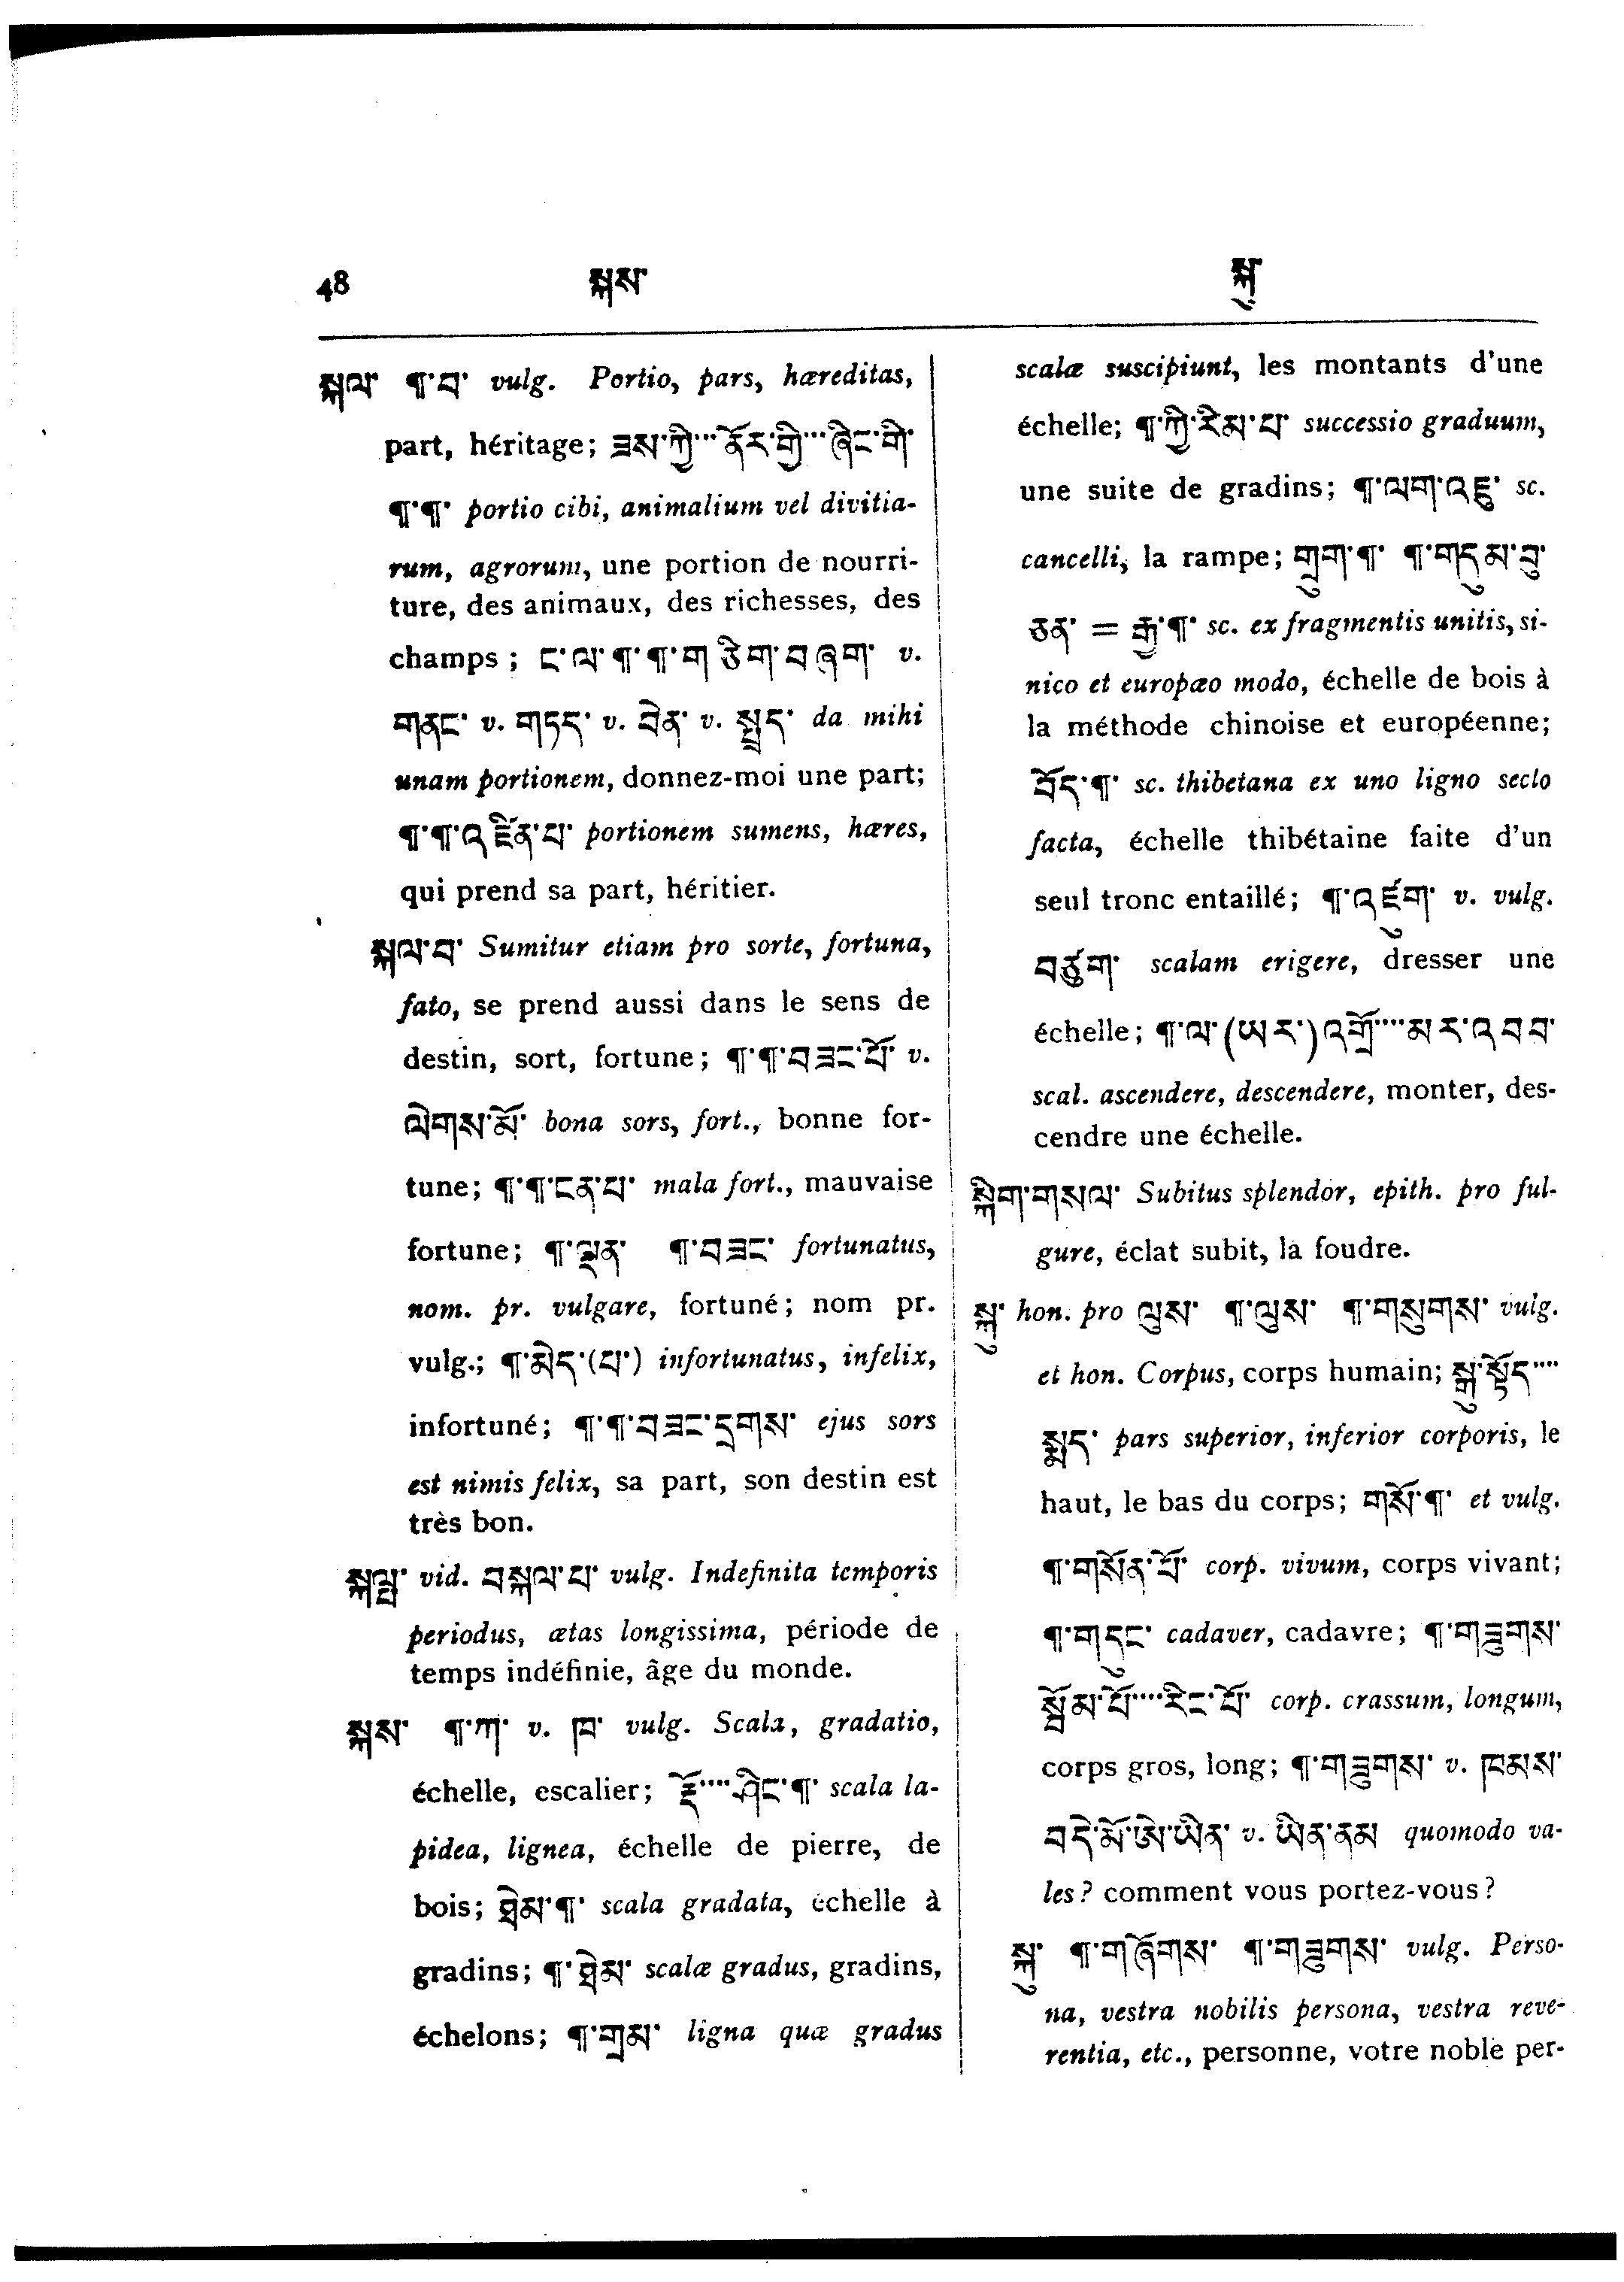 48 སྐས་ སྐུ་
སྐལ་ ¶་བ་ vulg. Portio, pars, hæreditas,
part, héritage; ཟས་ཀྱི་་་ནོར་གྱི་་་ཞིང་གི་
¶་¶་ portio cibi, animalium vel divitia-
rum, agrorum, une portion de nourri-
ture, des animaux, des richesses, des
champs; ང་ལ་¶་¶་གཅིག་བཞག་ v.
གནང་ v. གཏད་ v. བྲིན་ v. སྤྲད་ da mihi
unam portionem, donnez-moi une part;
¶་¶་འཛིན་པ་ portionem sumens, hæres,
qui prend sa part, héritier.
སྐལ་བ་ Sumitur etiam pro sorte, fortuna,
fato, se prend aussi dans le sens de
destin, sort, fortune; ¶་¶་བཟང་པོ་ v.
ལེགས་མོ་ bona sors, fort., bonne for-
tune; ¶་¶་ངན་པ་ mala fort., mauvaise
fortune; ¶་ལྡན་ ¶་བཟང་ fortunatus,
nom. pr. vulgare, fortuné; nom pr.
vulg.; ¶་མེད་(པ་) infortunatus, infelix,
infortuné; ¶་¶་བཟང་དྲགས་ ejus sors
est nimis felix, sa part, son destin est
très bon.
སྐལྤ་ vid. བསྐལ་པ་ vulg. Indefinita temporis
periodus, ætas longissima, période de
temps indéfinie, âge du monde.
སྐས་ ¶་ཀ་ v. ཁ་ vulg. Scala, gradatio,
échelle, escalier; རྡོ་་་་ཤིང་¶་ scala la-
pidea, lignea, échelle de pierre, de
bois; ཐེམ་¶་ scala gradata, échelle à
gradins; ¶་ཐེམ་ scalæ gradus, gradins,
échelons; ¶་གྲམ་ ligna quæ gradus
scalæ suscipiunt, les montants d'une
échelle; ¶་ཀྱི་རིམ་པ་ successio graduum,
une suite de gradins; ¶་ལག་འཇུ་ sc.
cancelli, la rampe; གྲུག་¶་ ¶་གདུམ་བུ་
ཅན་ = རྒྱ་¶་ sc. ex fragmentis unitis, si-
nico et europæo modo, échelle de bois à
la méthode chinoise et européenne;
བོད་¶་ sc. thibetana ex uno ligno secto
facta, échelle thibétaine faite d'un
seul tronc entaillé; ¶་འཛུག་ v. vulg.
བཙུག་ scalam erigere, dresser une
échelle; ¶་ལ་(ཡར་)འགྲོ་་་་མར་འབབ་
scal. ascendere, descendere, monter, des-
cendre une échelle.
སྐིག་གསལ་ Subitus splendor, epith. pro ful-
gure, éclat subit, la foudre.
སྐུ་ hon. pro ལུས་ ¶་ལུས་ ¶་གསུགས་ vulg.
et hon. Corpus, corps humain; སྐུ་སྟོད་་་་
སྨད་ pars superior, inferior corporis, le
haut, le bas du corps; གསོ་¶་ et vulg.
¶་གསོན་པོ་ corp. vivum, corps vivant;
¶་གདུང་ cadaver, cadavre; ¶་གཟུགས་
སྦོམ་པོ་་་་རིང་པོ་ corp. crassum, longum,
corps gros, long; ¶་གཟུགས་ v. ཁམས་
བདེ་མོ་ཨེ་ཡིན་ v. ཡིན་ནམ quomodo va-
les? comment vous portez-vous?
སྐུ་ ¶་གཞོགས་ ¶་གཟུགས་ vulg. Perso-
na, vestra nobilis persona, vestra reve-
rentia, etc., personne, votre noble per-